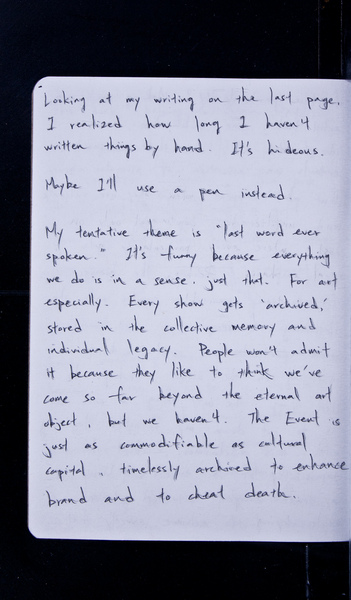 Looking at my writing on the last page,
I realized how long I haven't
written things by hand. It's hideous.
Maybe I'll use a pen instead.
My tentative theme is "last word ever
spoken." It's funny because everything
we do is in a sense, just that. For art
especially. Every show gets 'archived,'
stored in the collective memory and
individual legacy. People won't admit
it because they like to think we've
come so far beyond the eternal art
object, but we haven't. The Event is
just as commodifiable as cultural
capital, timelessly archived to enhance
brand and to cheat death.